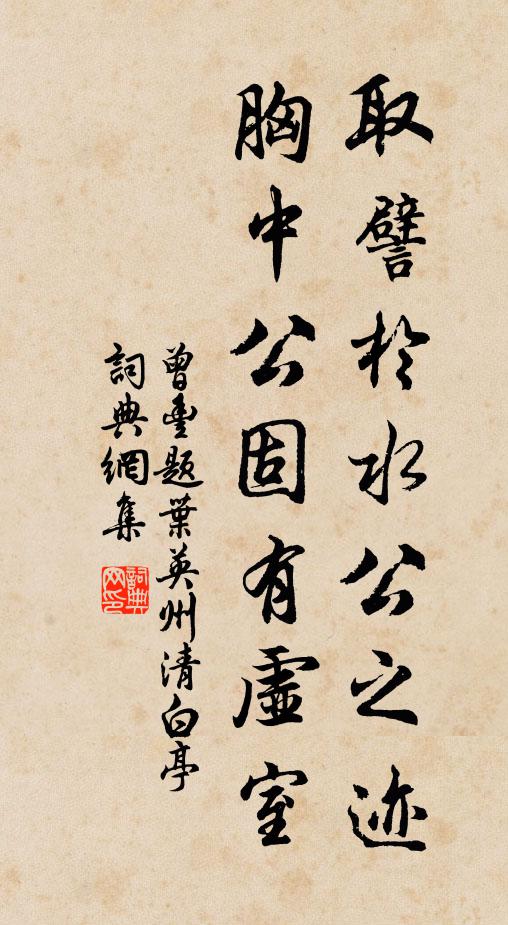 取譬於水公之迹
胸中公固有虛室
曾豐題葉英州清白亭
詞典網集
詞典網印